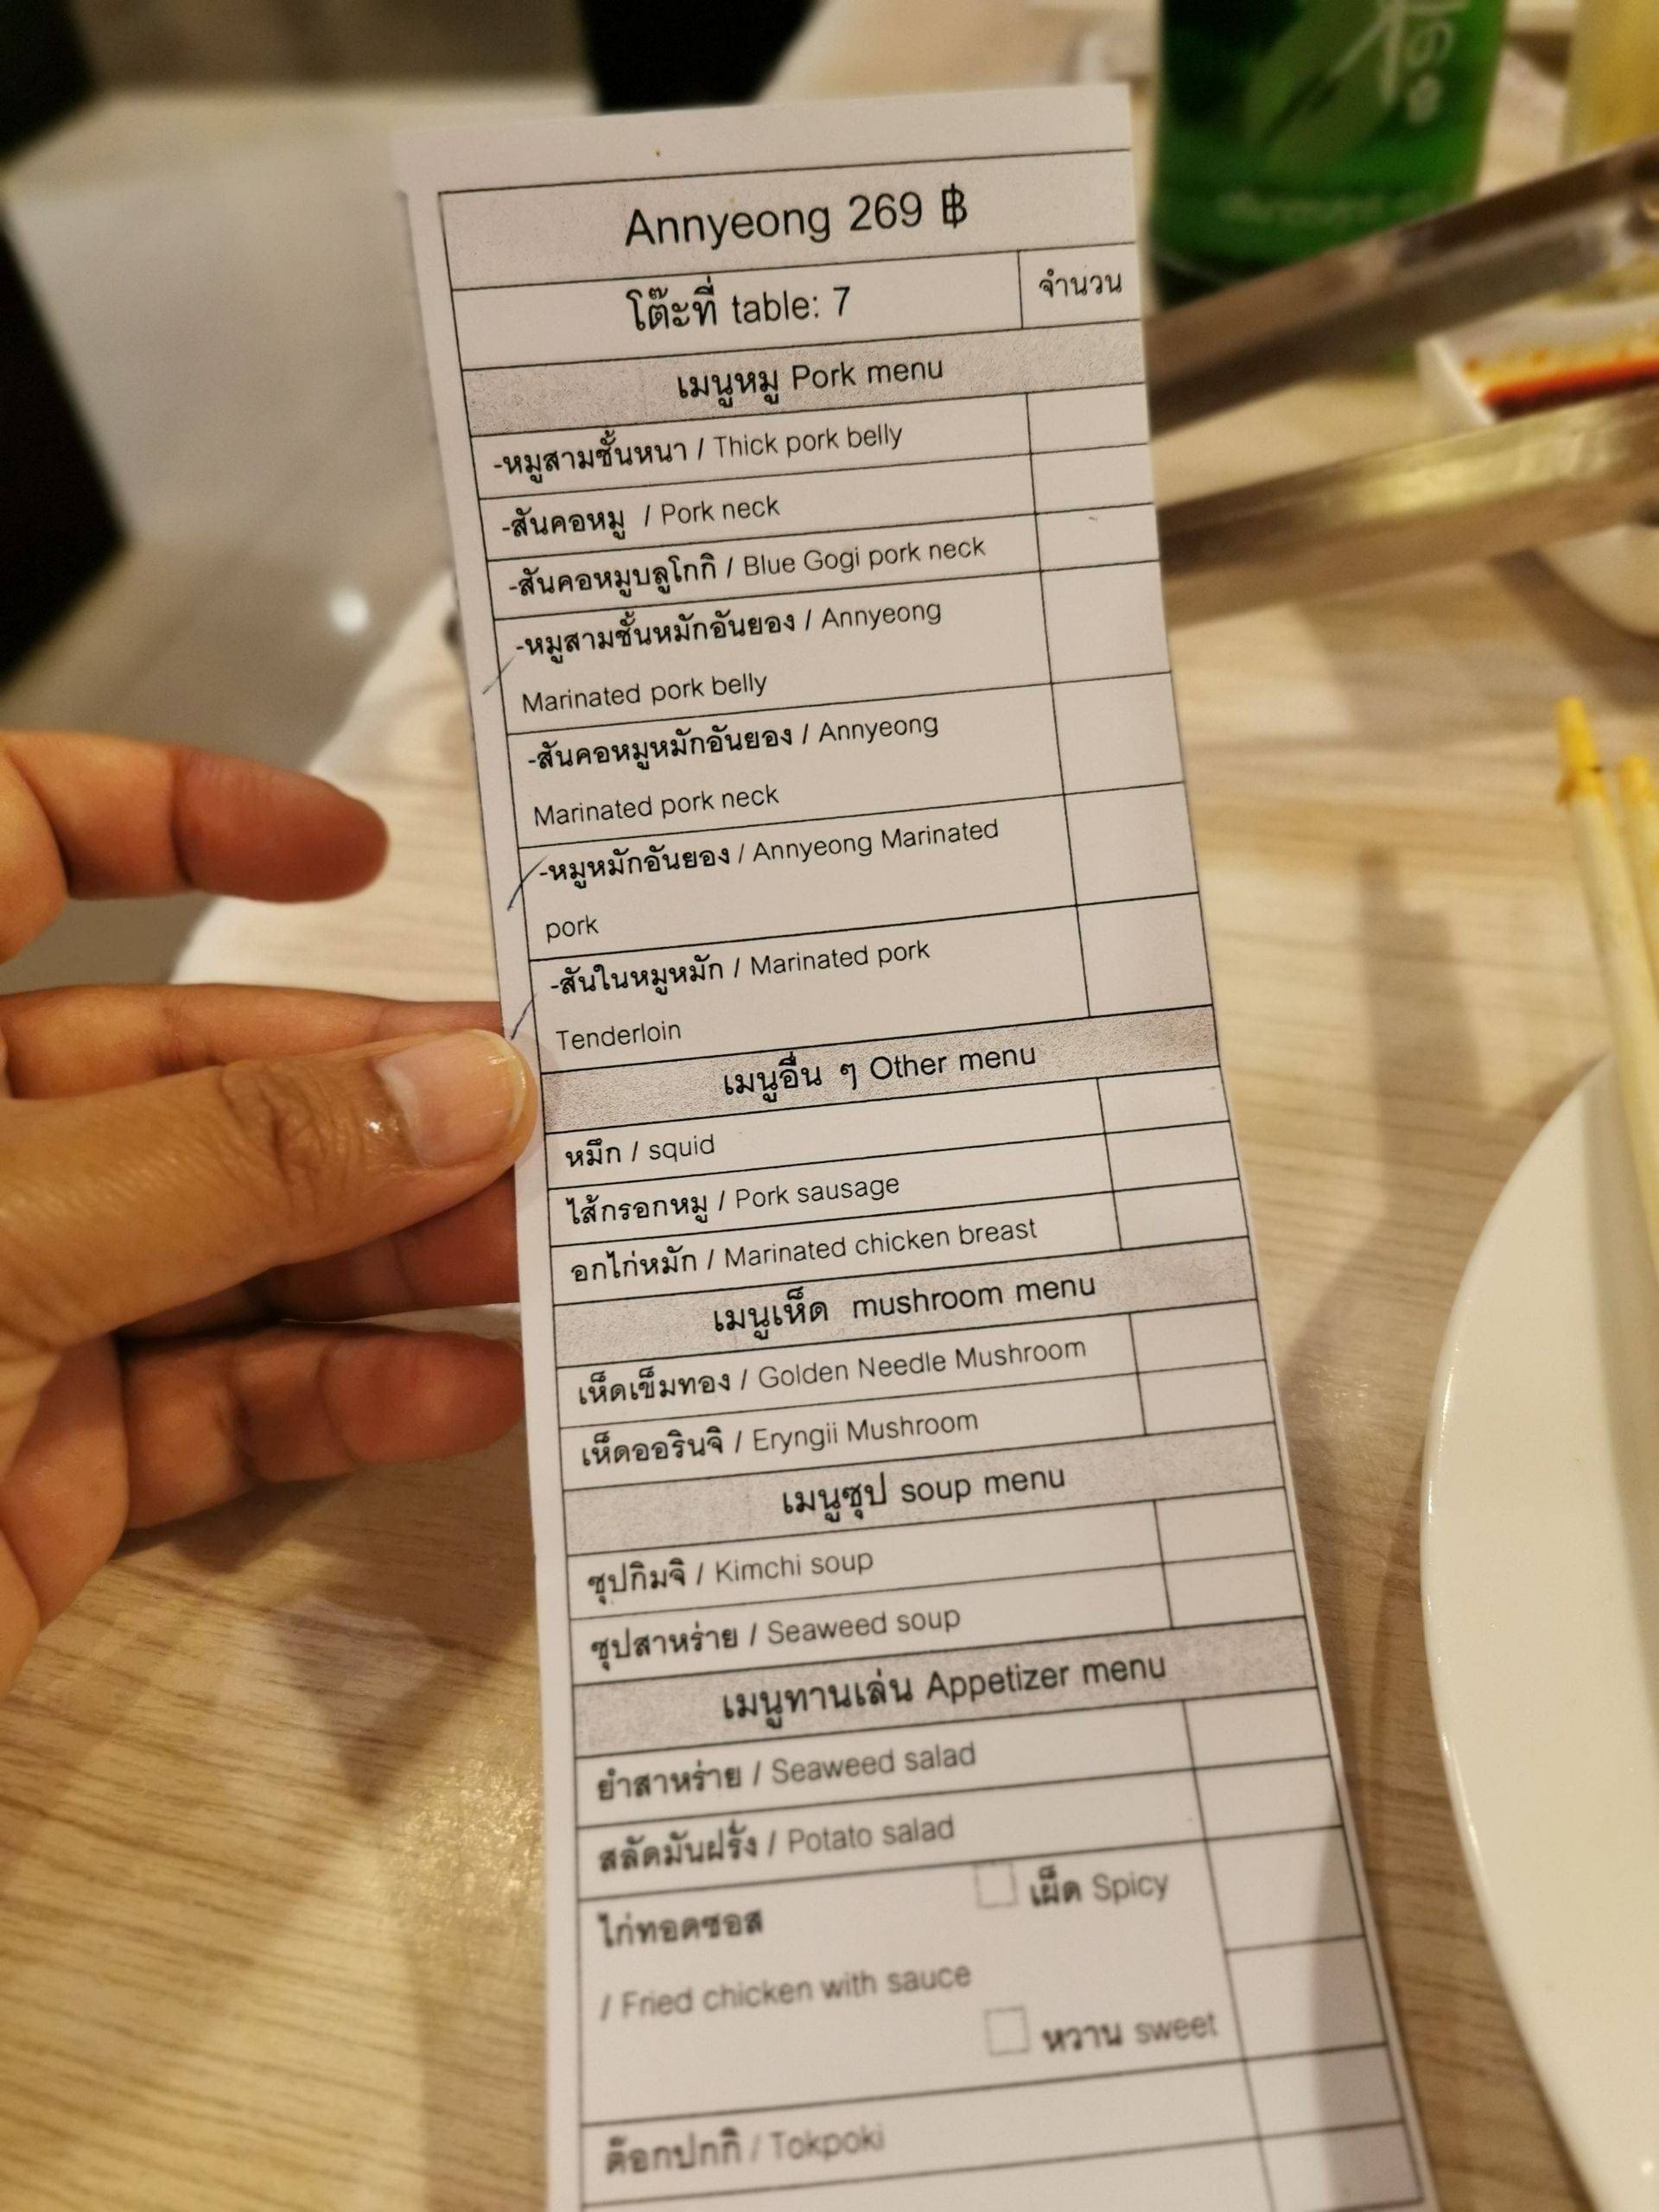 Annyeong 269 ฿
โต๊ะที่ table: 7
จำนวน
เมนูหมู Pork menu
-หมูสามชั้นหนา / Thick pork belly
-สันคอหมู / Pork neck
-สันคอหมูบลูโกกิ / Blue Gogi pork neck
-หมูสามชั้นหมักอันยอง / Annyeong
Marinated pork belly
-สันคอหมูหมักอันยอง / Annyeong
Marinated pork neck
-หมูหมักอันยอง / Annyeong Marinated
pork
-สันในหมูหมัก / Marinated pork
Tenderloin
เมนูอื่น ๆ Other menu
หมึก / squid
ไส้กรอกหมู / Pork sausage
อกไก่หมัก / Marinated chicken breast
เมนูเห็ด mushroom menu
เห็ดเข็มทอง / Golden Needle Mushroom
เห็ดออรินจิ / Eryngii Mushroom
เมนูซุป soup menu
ซุปกิมจิ / Kimchi soup
ซุปสาหร่าย / Seaweed soup
เมนูทานเล่น Appetizer menu
ยำสาหร่าย / Seaweed salad
สลัดมันฝรั่ง / Potato salad
เผ็ด Spicy
ไก่ทอดซอส
/ Fried chicken with sauce
หวาน sweet
ต๊อกปกกิ / Tokpoki